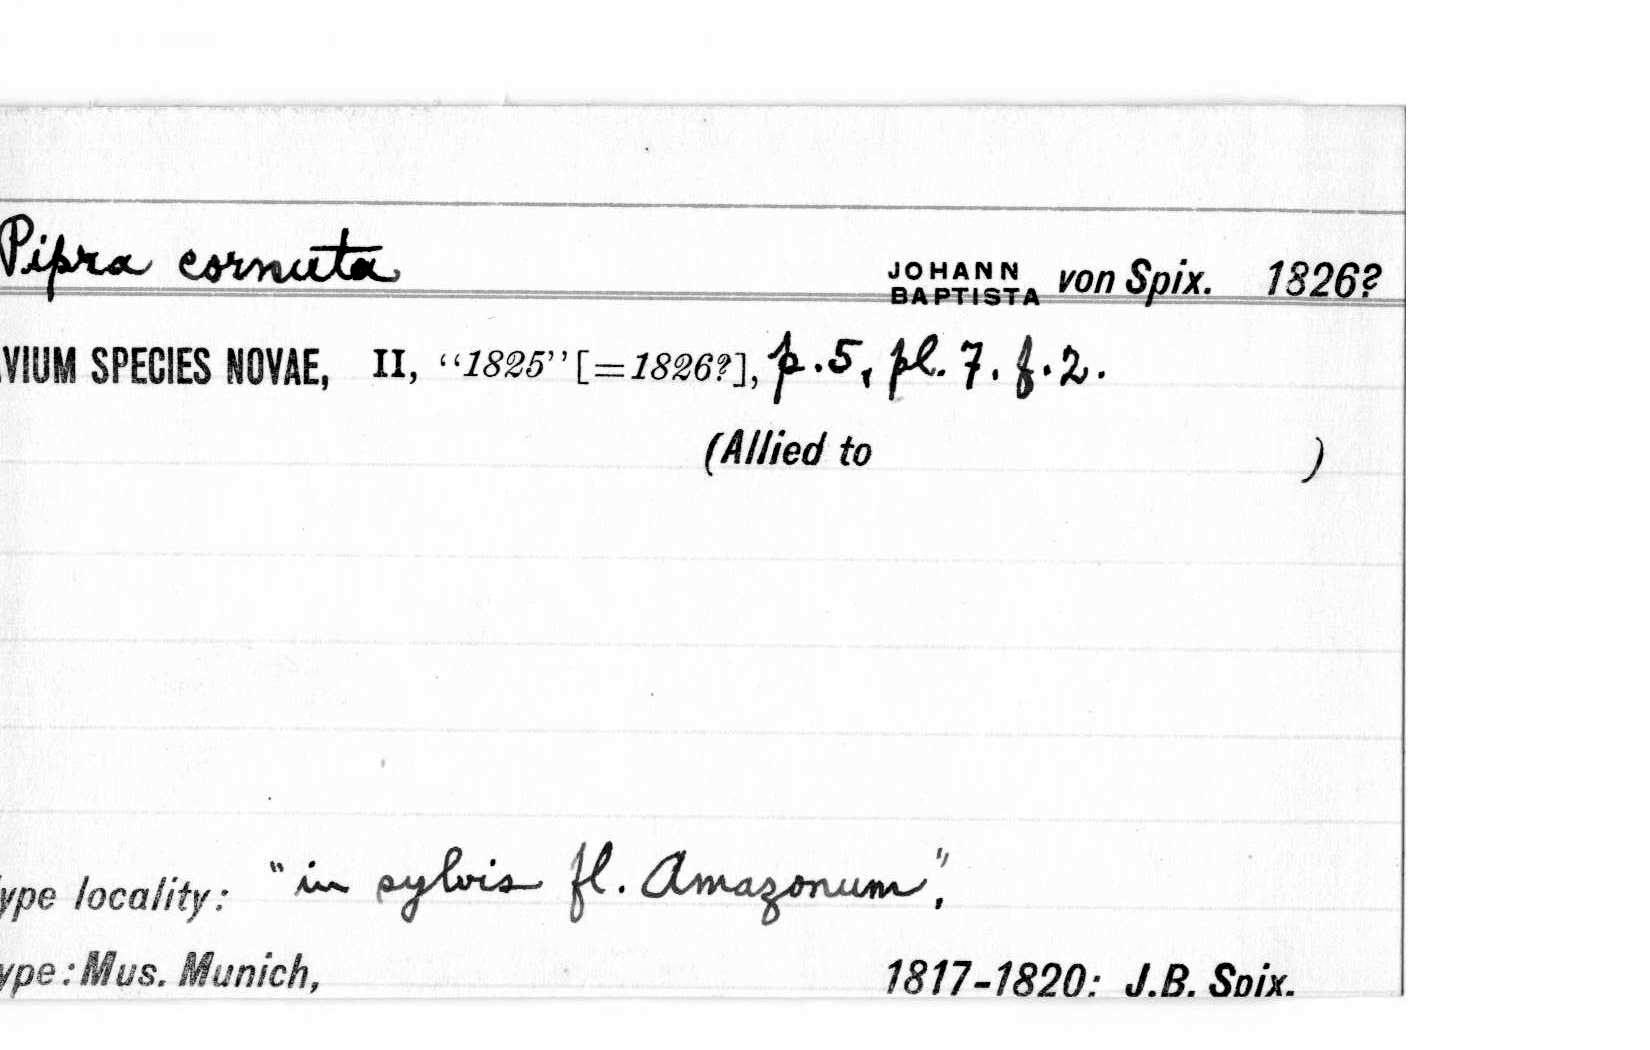 Pipra cornuta JOHANN BAPTISTA von Spix. 1826?
VIUM SPECIES NOVAE, II, “1825” [=1826?], p.5, pl. 7. f.2.
(Allied to )
ype locality: "in sylvis fl. Amazonum".
ype: Mus. Munich, 1817-1820: J.B. Spix.